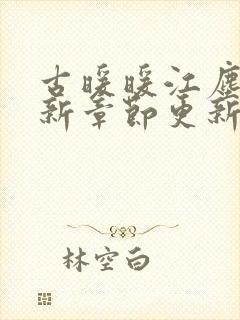 古暖暖江尘
新章节更新
林空白